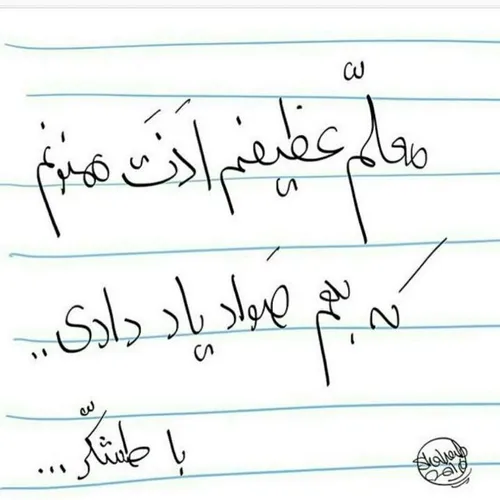 معلّم عظیضم اَذَت ممنونم
که بهم صَواد یاد دادی..
با طشکّر...